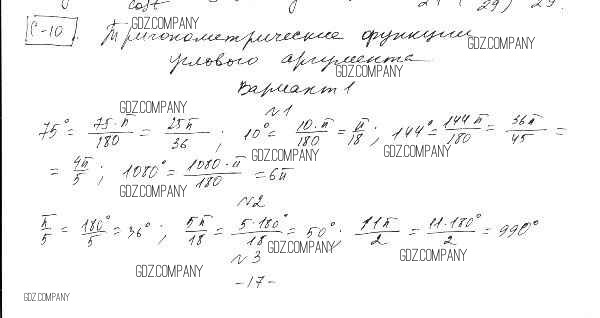 GDZ.COMPANY
С-10. Тригонометрические функции
GDZ.COMPANY
углового аргумента
GDZ.COMPANY
Вариант 1
GDZ.COMPANY
N1
75° = 75·π/180 = 25π/36 ; 10° = 10·π/180 = π/18 ; 144° = 144π/180 = 36π/45 =
GDZ.COMPANY GDZ.COMPANY
= 4π/5 ; 1080° = 1080·π/180 = 6π
GDZ.COMPANY
N2
π/5 = 180°/5 = 36° ; 5π/18 = 5·180°/18 = 50° . 11π/2 = 11·180°/2 = 990°
GDZ.COMPANY GDZ.COMPANY
N3
GDZ.COMPANY
-17-
GDZ.COMPANY